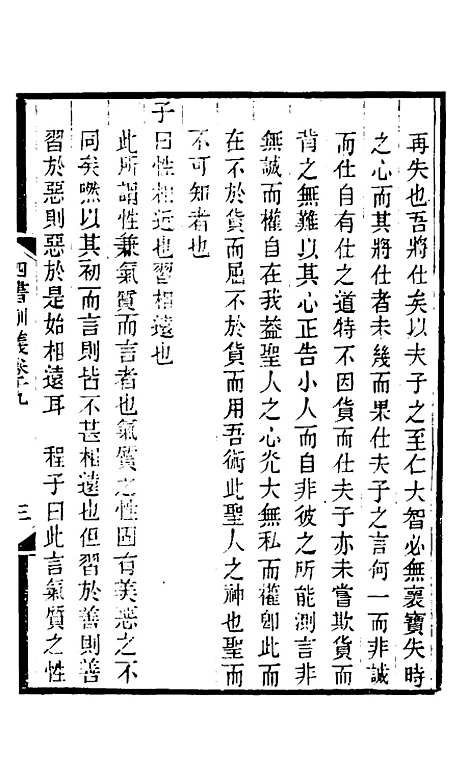 再失也吾將仕矣以夫子之至仁大智必無襄寶失時
之心而其將仕者未幾而果仕夫子之言何一而非誠
而仕自有仕之道特不因貨而仕夫子亦未嘗欺貨而
背之無難以其心正告小人而自非彼之所能測言非
無誠而權自在我葢聖人之心光大無私而權卽此而
在不於貨而屈不於貨而用吾術此聖人之神也聖而
不可知者也
子曰性相近也習相遠也
此所謂性兼氣質而言者也氣質之性固有美惡之不
同矣然以其初而言則皆不甚相遠也但習於善則善
習於惡則惡於是始相遠耳　程子曰此言氣質之性
四書訓義卷十九　三